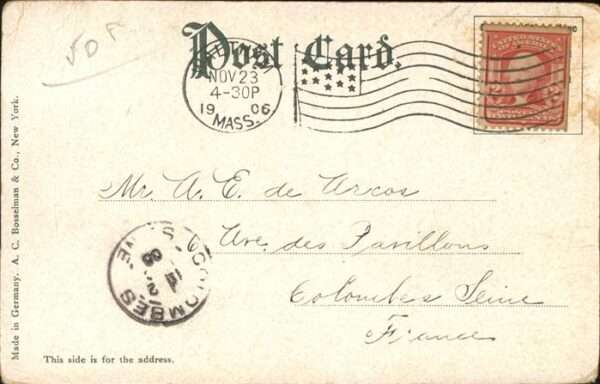 Post Card.
NOV 23
4-30P
19 06
MASS.
UNITED STATES
OF AMERICA
2 2
Mr. A. E. de Arcos
Ave. des Pavillons
Colombes Seine
France
COLOMBES
Made in Germany. A. C. Bosselman & Co., New York.
This side is for the address.